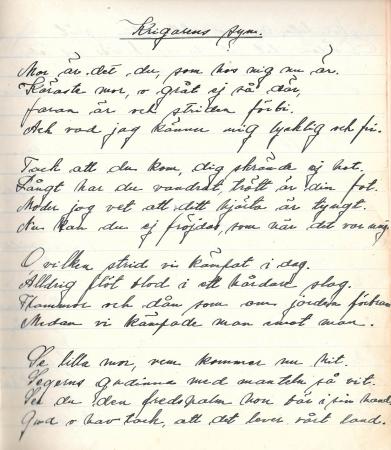 Krigarens syn.
Mor är det du, som hos mig nu är.
Käraste mor, o gråt ej så där,
faran är och striden förbi.
Ack vad jag känner mig lycklig och fri.
Tack att du kom, dig skrämde ej hot.
Långt har du vandrat trött är din fot.
Moder jag vet att ditt hjärta är tyngt.
Nu kan du ej fröjdas som när det var ungt
O vilken strid vi kämpat i dag.
Aldrig flöt blod i ett hårdare slag.
Trummor och dån som om jorden förbrann
Medan vi kämpade man emot man.
Se lilla mor, vem kommer nu hit.
Segerns gudinna med manteln så vit.
Ser du den fredspalm hon bär i sin hand,
Gud o hav tack, att det lever vårt land.